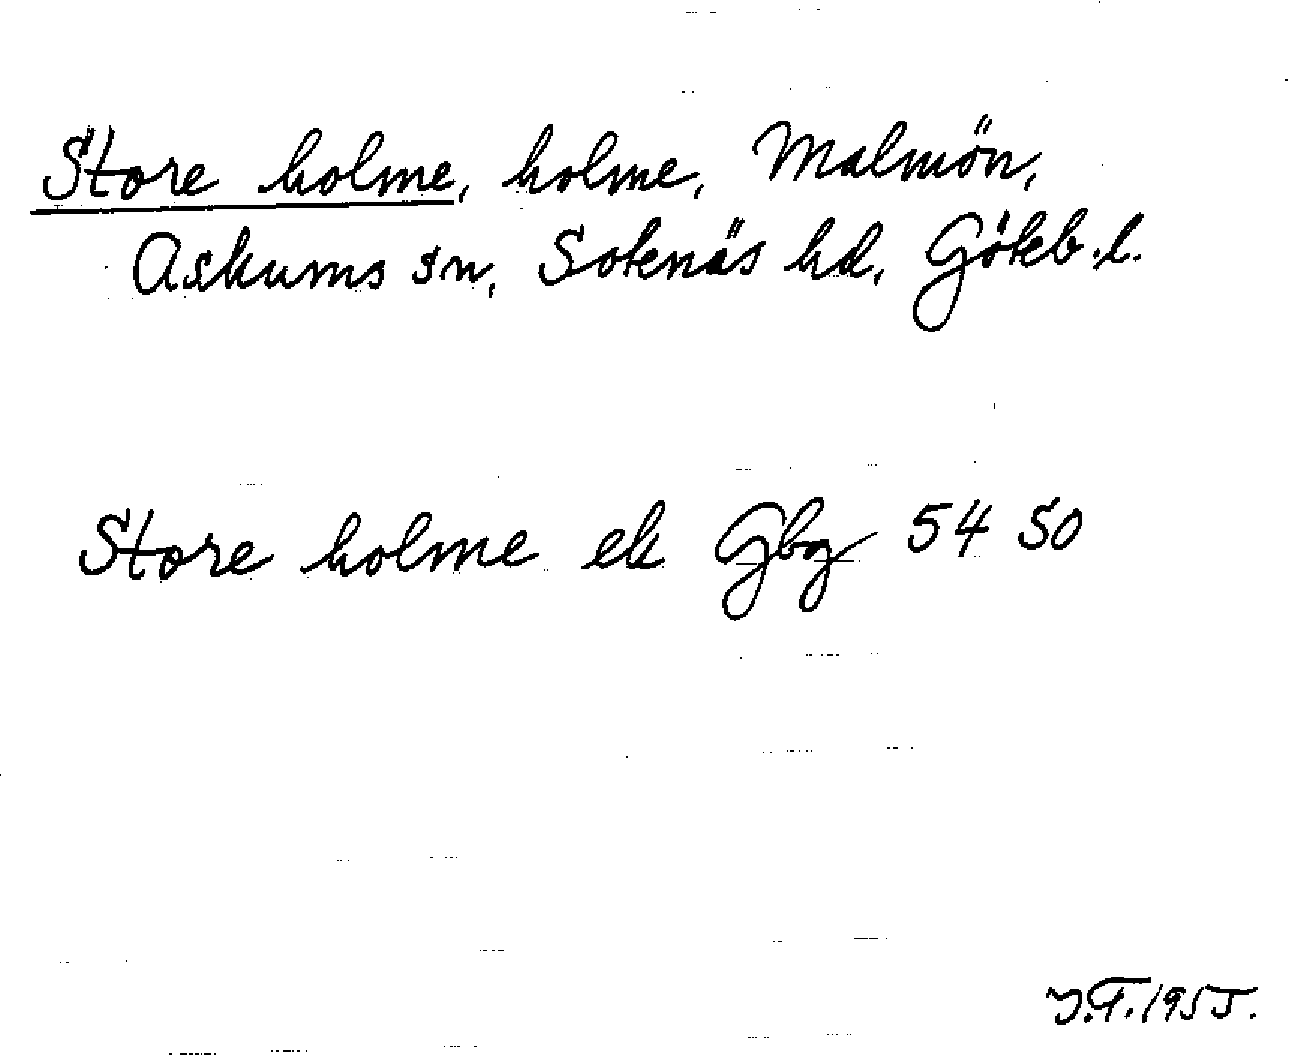 Store holme, holme, Malmön,
Askums sn, Sotenäs hd, Göteb.l.
Store holme ek Gbg 54 50
J.F. 1955.